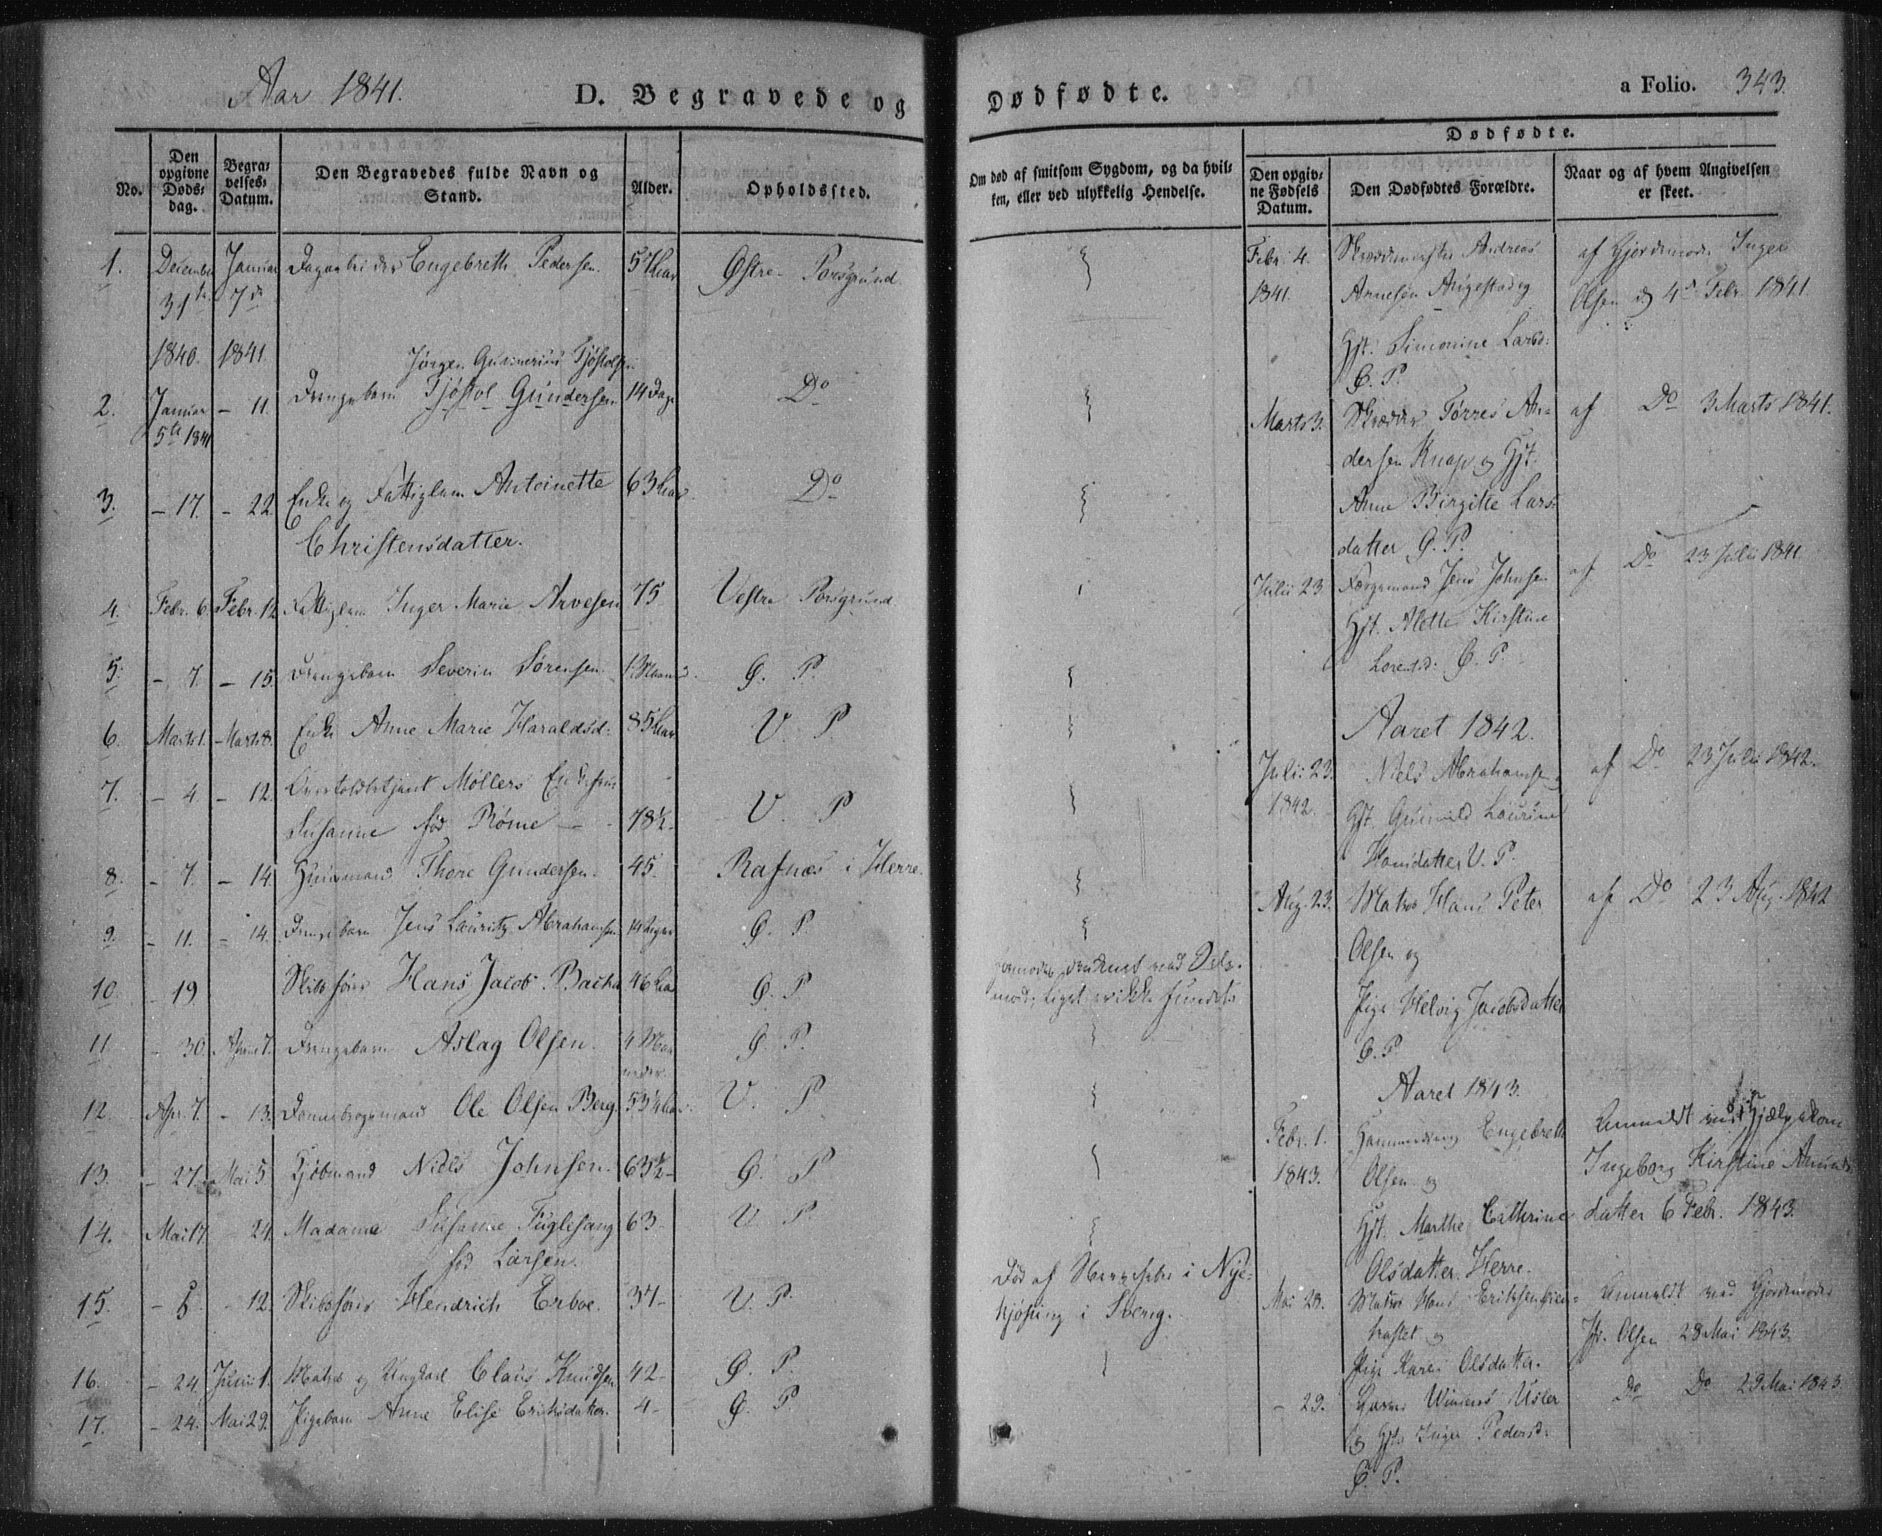 Aar 1841. D. Begravede og
No. Den opgivne Døds-dag. Begra-velses-Datum. Den Begravedes fulde Navn og Stand. Alder. Opholdssted.
1. December Januar Engebreth Pedersen. Østre Porsgrund
31te 7de
1840. 1841.
Jørgen Gunnerius Tjøstolfsen
2. Januar – 11. Drengebarn Tjøstol Gundersen 14 Dage Do
5te 1841
3. – 17. – 22. Enke og Fattiglem Antoinette 63 Do
Christensdatter.
4. Febr. 6. Febr. 12 Fattiglem Inger Marie Arvesen 75 Vestre Porsgrund
5. – 7. – 15. Drengebarn Severin Sørensen Ø. P.
6. Marts 1. Marts 8. Enke Anne Marie Haraldsd: 85 V. P.
7. – 4. – 12. Møllers
Susanne fød Röme – 78½ V. P
8. – 7. – 14 Huusmand Thore Gundersen. 45. Rafnæs i Herre.
9. – 11. – 14. Drengebarn Jens Lauritz Abrahamsen 14 Ø. P
10. – 19. Skibsfører Hans Jacob 46 Ø. P
11 – 30. April 7. Drengebarn Aslag Olsen. 4 Maa Ø. P.
neder.
12. Apr. 7. – 13. Dannebrogsmand Ole Olsen Berg. V. P.
13. – 27. Mai 5. Kjøbmand Niels Johnsen. 63½ – Ø. P
14. Mai 17 24. Madame Susanne Fuglesang 63 – V. P.
fød Larsen.
15. – 8. – 12. Skibsfører Hendrich Erboe. 37 – V. P.
16. – 24. Junii 1. Matros og Ungkarl Claus Knudsen 42 – Ø. P.
17. – 24. Mai 29. Pigebarn Anne Elise Eriksdatter. 4 – Ø. P
Dødfødte. a Folio. 343.
Om død af smitsom Sygdom, og da hvil-ken, eller ved ulykkelig Hendelse.
Dødfødte.
Den opgiv-ne Fødsels Datum. Den Dødfødtes Forældre. Naar og af hvem Angivelsen er skeet.
Febr. 4. Andreas af Gjordemoder Inger
1841. Arnesen Augestad og Olsen d 4de Febr 1841.
Hst. Simonine Larsd:
Ø. P.
Marts 3. Skræder Tørres An- af Do 3 Marts 1841.
dersen Knap og Hst.
Anne Birgitte Lars-
datter Ø. P.
Julii 23 Færgemand Jens Johnsen af Do 23 Julii 1841
Hst. Alette Kirstine
Lorentsd: Ø. P.
Aaret 1842.
Julii 23. Niels Abrahamsen af Do 23 Julii 1842.
1842. Hst. Gunnild Laurine
Hansdatter V. P.
Aug. 23. Matros Hans Peter af Do 23 Aug. 1842
Olsen og
Pige Helvig Jacobsdatter
Ø. P
Aaret 1843.
Febr. 1. Engebreth Anmeldt ved Hjælpekone
1843. Olsen og Ingeborg Kirstine Amunds
Hst. Marthe Cathrine datter 6 Febr. 1843.
Olsdatter. Herre.
Mai 28. Matros Hans Eriksen Anmeldt ved Gjordemoder
og Olsen 28 Mai 1843.
Pige Karen Olsdatter.
– 29. Do Do 29 Mai 1843.
og Hst. Inger Pedersd:
Ø P.
druknet ved
Liget er ikke fundet.
Død af i Nye-
kjøping i Sverig.